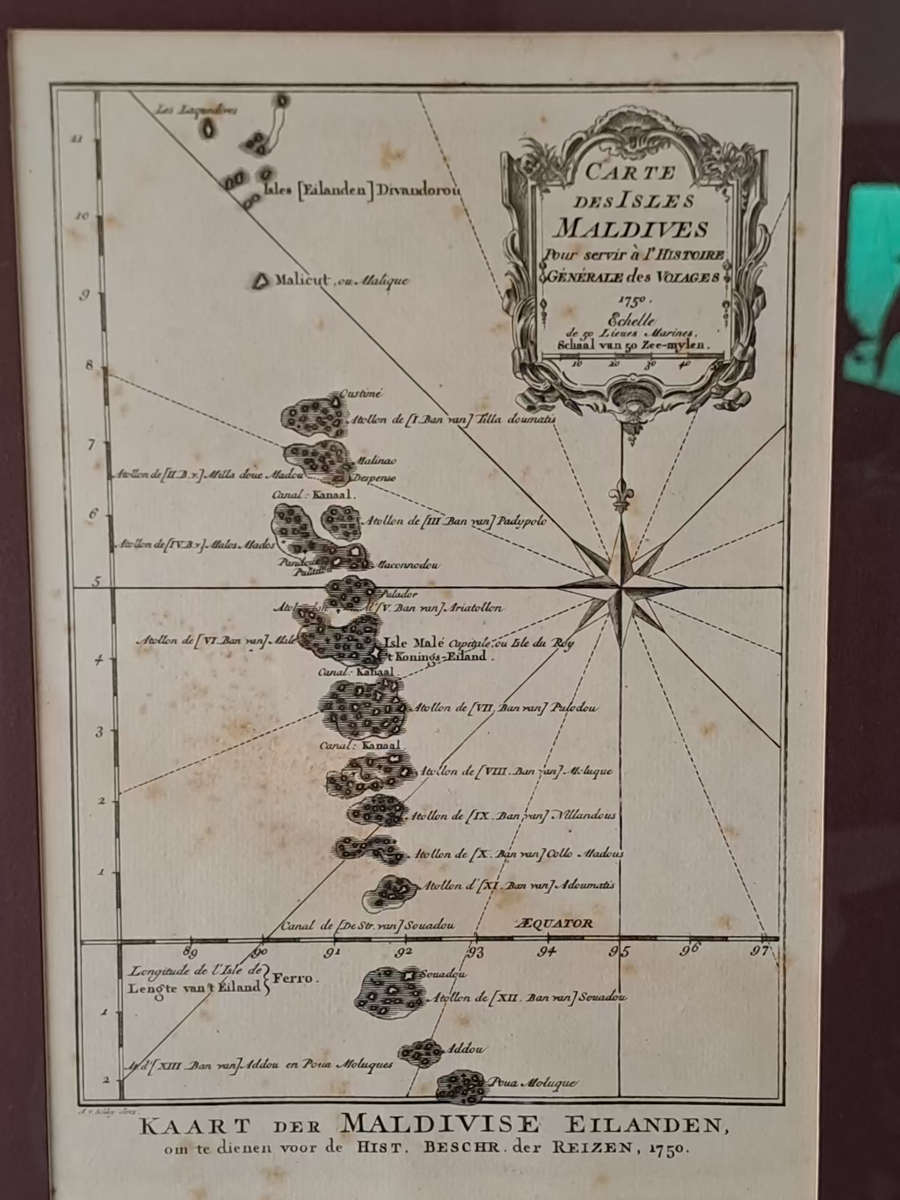 Les Laquedives
Isles [Eilanden] Divandorou
CARTE
DES ISLES
MALDIVES
Pour servir à l'HISTOIRE
GÉNÉRALE des VOIAGES
1750.
Echelle
de 50 Lieues Marines.
Schaal van 50 Zee-mylen.
10 20 30 40
Malicut, ou Malique
Oustimé
Atollon de [I. Ban van] Tilla doumatis
Malinao
Atollon de [II. B.v.] Milla doue Madou
Despense
Canal: Kanaal.
Atollon de [III Ban van] Padypolo
Atollon de [IV. B.v.] Malos Mados
Maconnodou
Pulador
[V. Ban van] Ariatollon
Atollon de [VI. Ban van] Male
Isle Malé Capitale, ou Isle du Roy
't Konings-Eiland.
Canal: Kanaal
Atollon de [VII. Ban van] Pulodou
Canal: Kanaal
Atollon de [VIII. Ban van] Moluque
Atollon de [IX. Ban van] Nillandous
Atollon de [X. Ban van] Collo Madous
Atollon d' [XI. Ban van] Adoumatis
Canal de [De Str. van] Souadou
ÆQUATOR
11
10
9
8
7
6
5
4
3
2
1
89 90 91 92 93 94 95 96 97
Longitude de l'Isle de
Lengte van 't Eiland
Ferro.
Souadou
Atollon de [XII. Ban van] Souadou
1
Addou
At. d' [XIII. Ban van] Addou en Poua Moluques
2
Poua Moluque
KAART DER MALDIVISE EILANDEN,
om te dienen voor de HIST. BESCHR. der REIZEN, 1750.